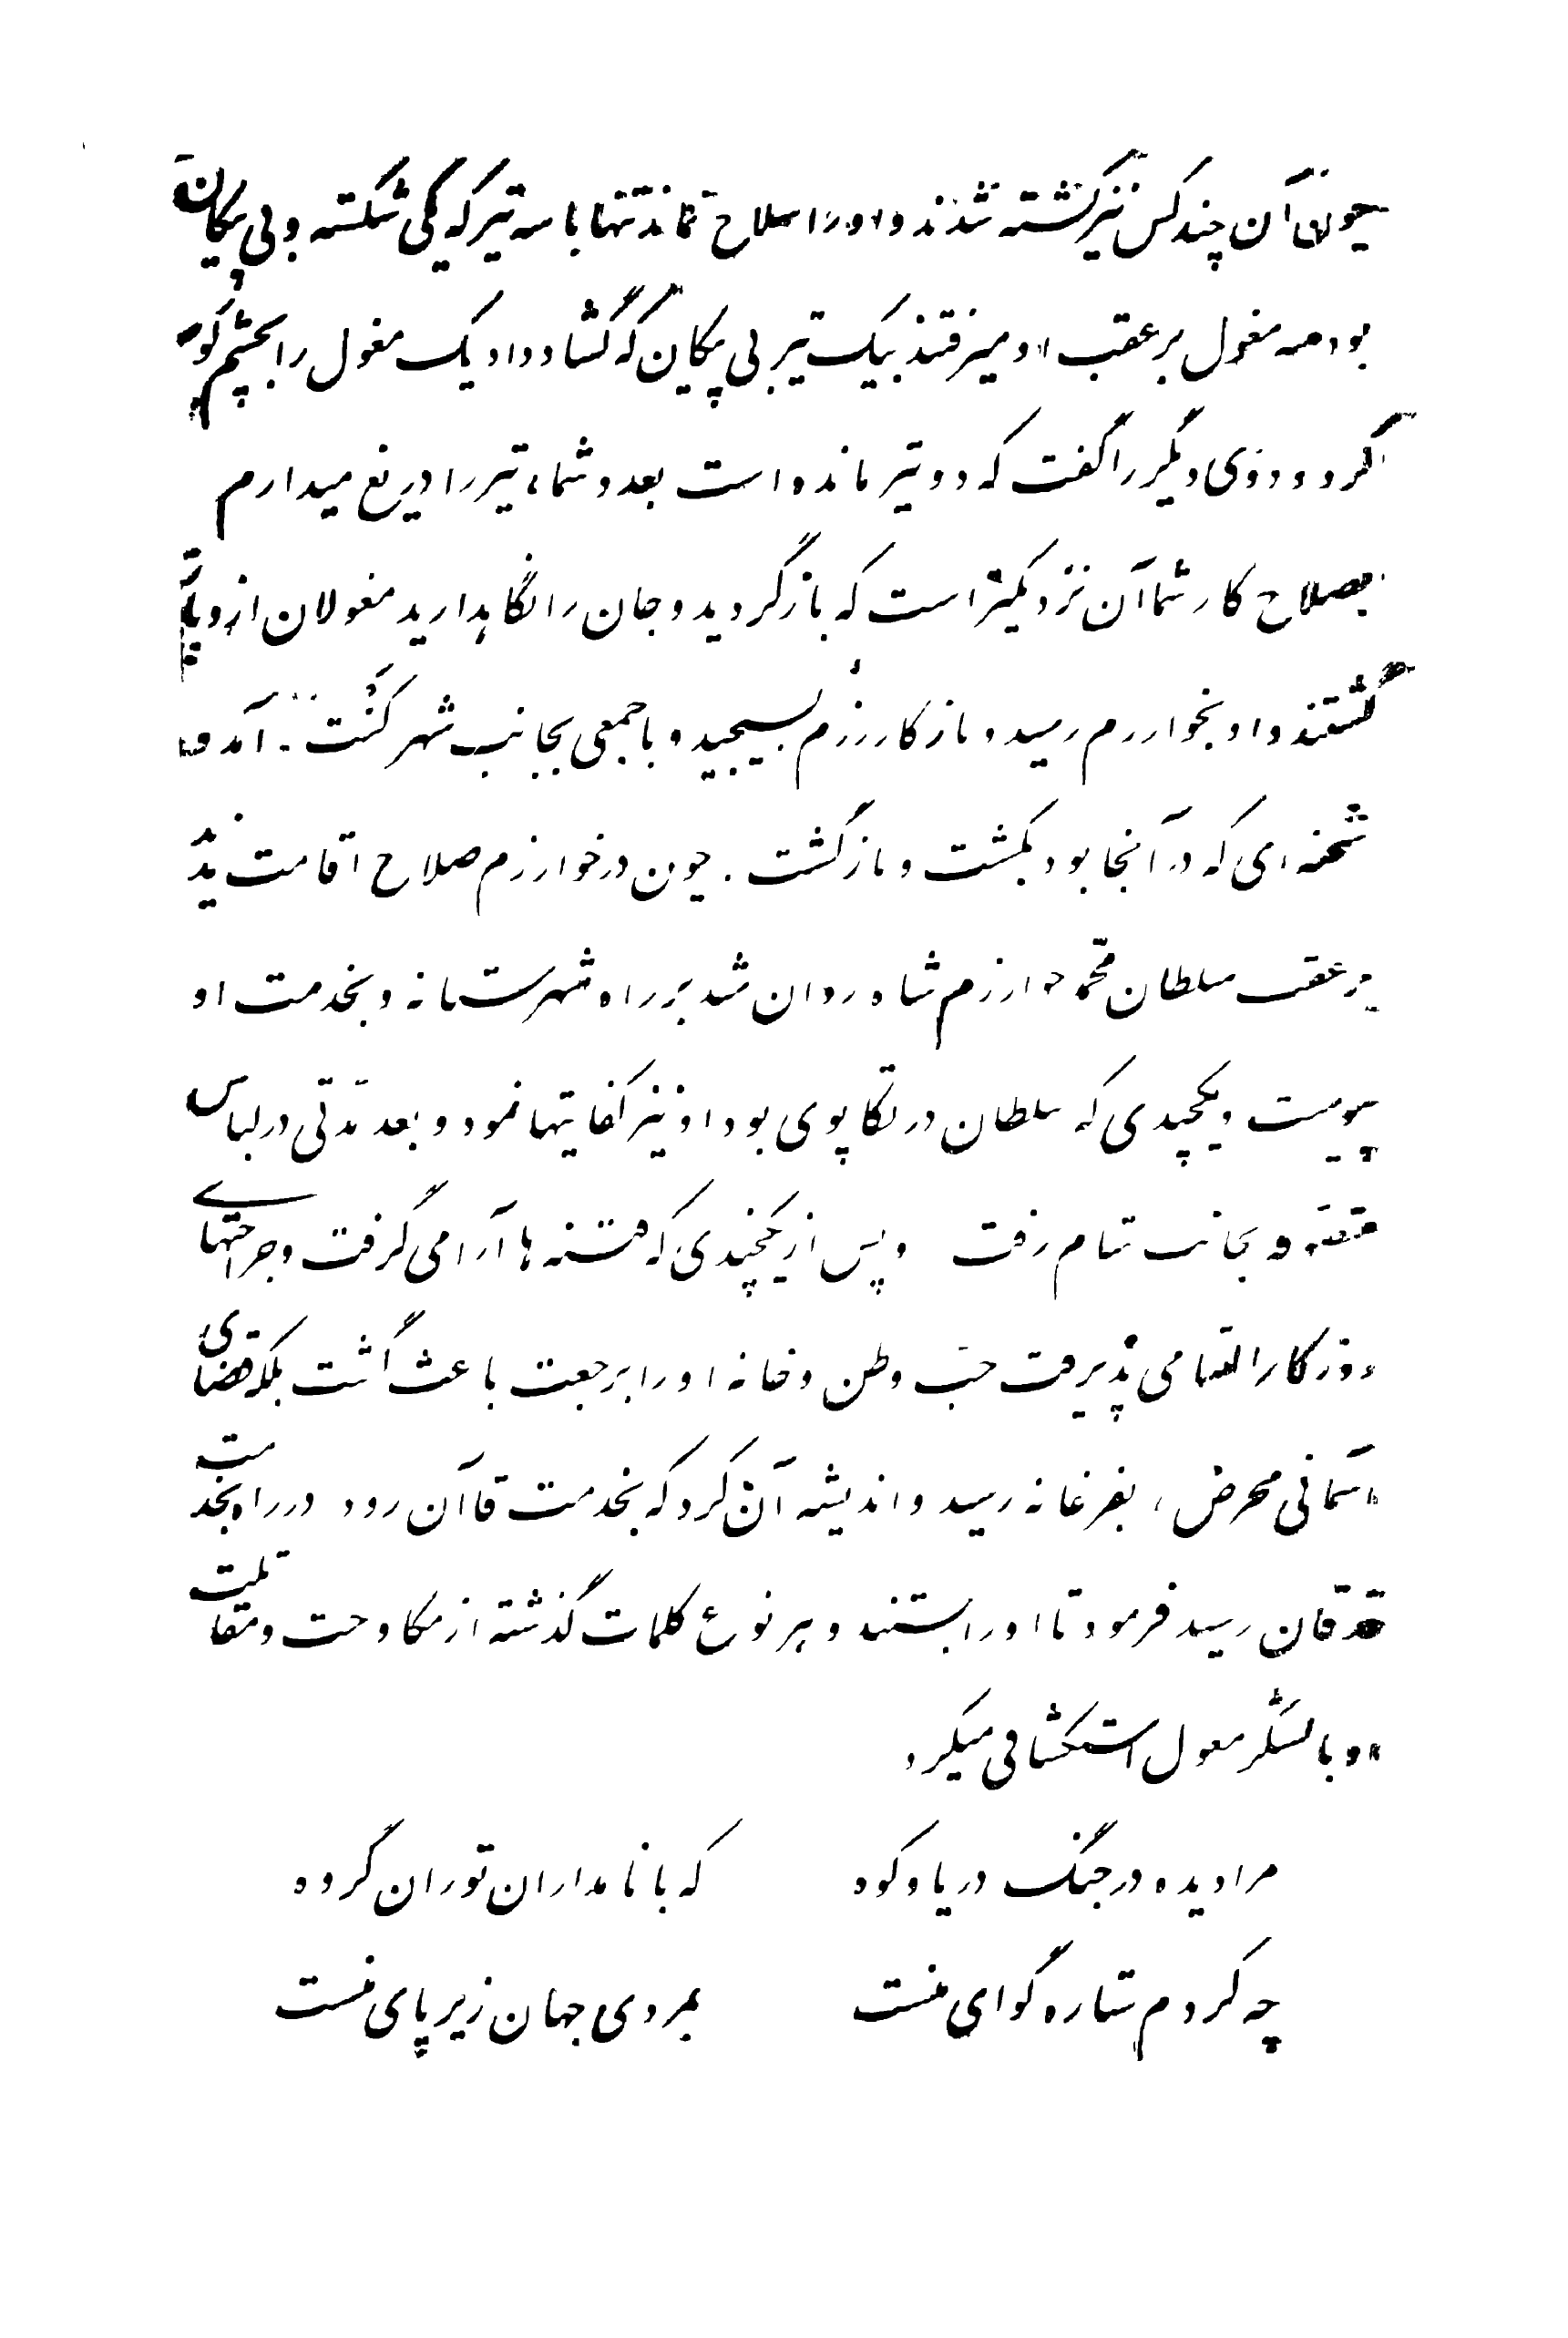 چون آن چند کس نیز کشته شدند و او را سلاح نماند تنها با سه تیر که یکی شکسته و بی پیکان
بود سه مغول بر عقب او میرفتند بیک تیر بی پیکان که گشاد داد یک مغول را بچشم کور
کرد و دوی دیگر را گفت که دو تیر مانده است بعدد شما، تیر را دریغ میدارم
بصلاح کار شما آن نزدیکتر است که بازگردید و جان را نگاهدارید مغولان ازو باز
گشتند و او بخوارزم رسید و باز کار رزم بسیجید و با جمعی بجانب شهر کنت آمد و
شحنه‌ای که در آنجا بود بکشت و بازگشت. چون در خوارزم صلاح اقامت ندید
بر عقب سلطان محمد خوارزم شاه روان شد بر راه شهرستانه و بخدمت او
پیوست و یکچندی که سلطان در تکاپوی بود او نیز کفایتها نمود و بعد مدّتی در لباس
متصوفه بجانب شام رفت و پس از یکچندی که فتنه ها آرامی گرفت و جراحتهای
روزگار التیامی پذیرفت حبّ وطن و خانه او را بر رجعت باعث گشت بلکه قضای
آسمانی محرض، بفرغانه رسید و اندیشه آن کرد که بخدمت قاآن رود در راه بخدمت
قدقان رسید فرمود تا او را بستند و بهر نوع کلمات گذشته از مکاوحت و مقاتلت
او با لشکر مغول استکشافی میکرد
مرا دیده در جنگ دریا و کوه که با نامداران توران گروه
چه کردم ستاره گوای منست بمردی جهان زیر پای منست